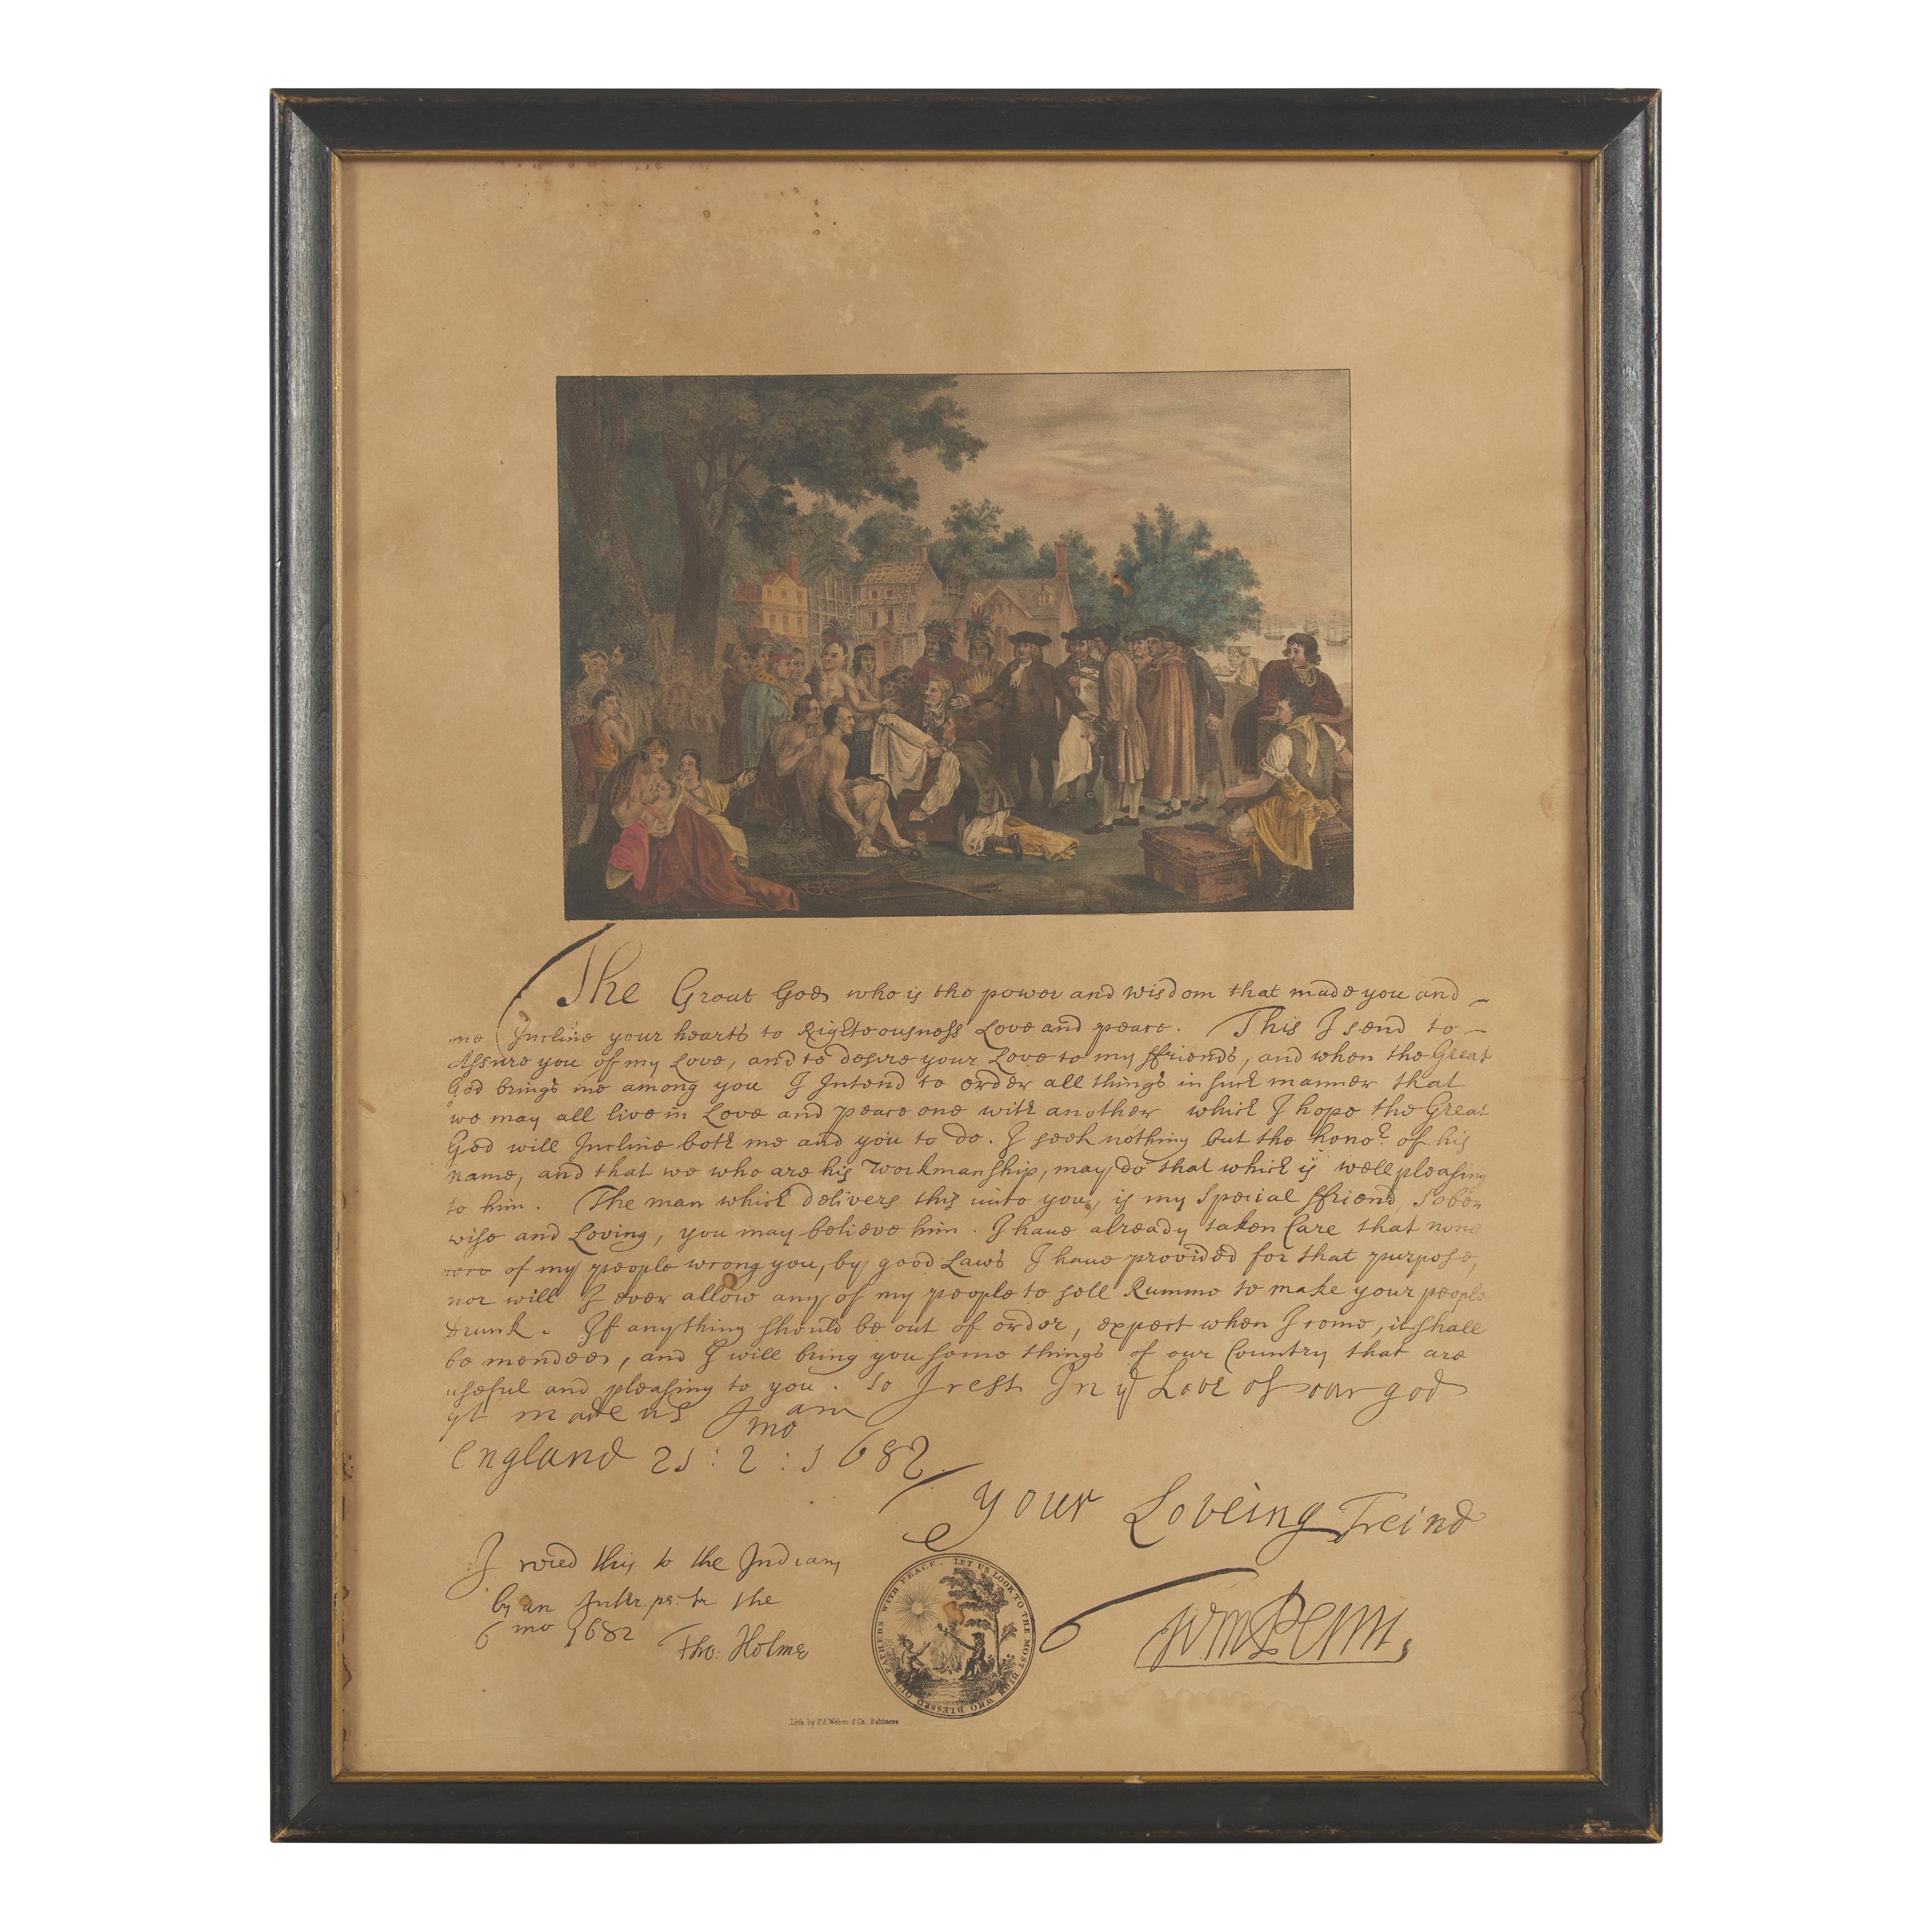 The Great God who is the power and wisdom that made you and
me Incline your hearts to Righteousness Love and peace. This I send to
Assure you of my Love, and to desire your Love to my ffriends, and when the Great
God brings me among you I Intend to order all things in such manner that
we may all live in Love and peace one with another which I hope the Great
God will Incline both me and you to do. I seek nothing but the honor. of his
name, and that we who are his Workmanship, may do that which is well pleasing
to him. The man which delivers this unto you, is my Special ffriend, Sober
wise and Loving, you may believe him. I have already taken Care that none
of my people wrong you, by good Laws I have provided for that purpose,
nor will I ever allow any of my people to sell Rumme to make your people
drunk. If anything should be out of order, expect when I come, it shall
be mended, and I will bring you some things of our Country that are
useful and pleasing to you. So I rest In ye Love of our god
yt made us I am
england 21 : 2 mo : 1682
your Loveing Freind
I read this to the Indians
by an Interpreter the
6 mo 1682 Tho: Holme
WmPenn
LET US LOOK TO THE MOST HIGH WHO BLESSED OUR FATHERS WITH PEACE.
Lith. by Ed. Weber & Co. Baltimore